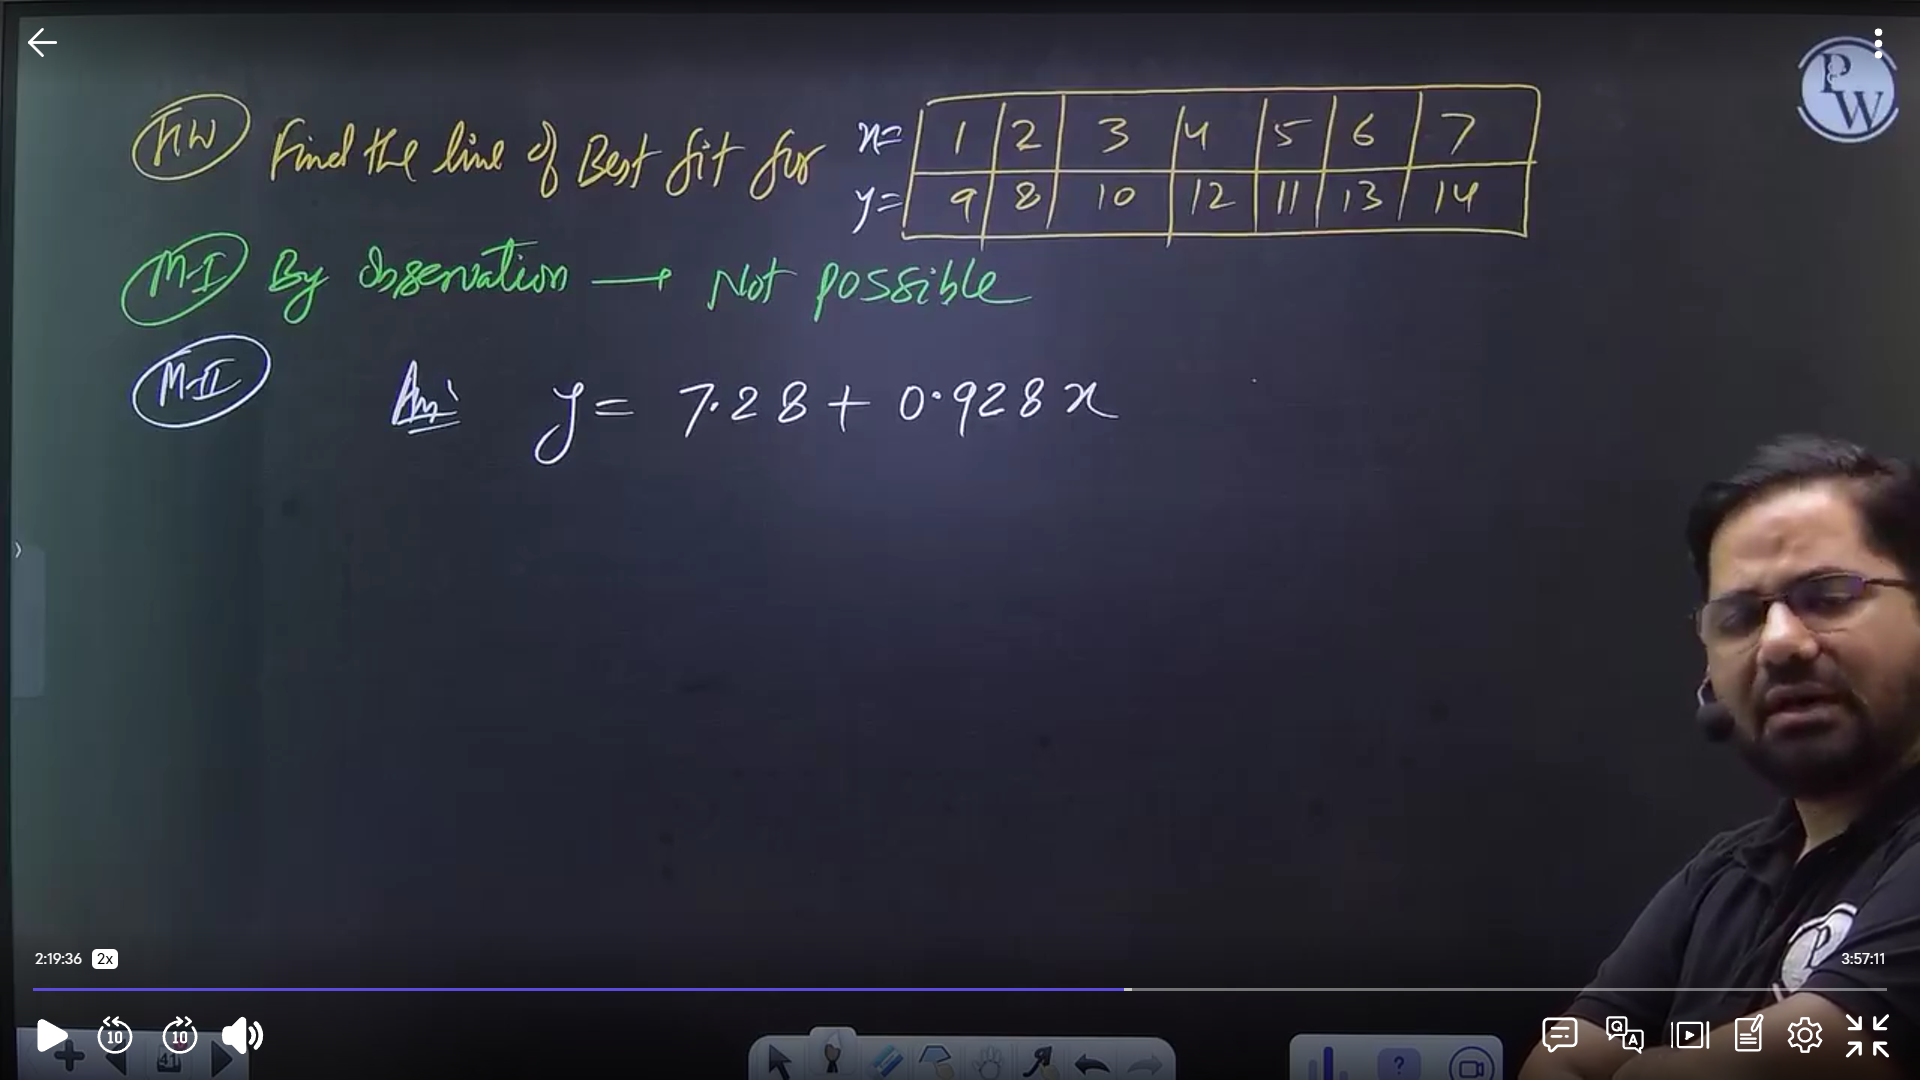 HW Find the line of Best fit for x= 1 2 3 4 5 6 7
y= 9 8 10 12 11 13 14
M-I By observation → Not possible
M-II Ans: y = 7.28 + 0.928x
PW
2:19:36 2x 3:57:11
10 10
41
Q A
?